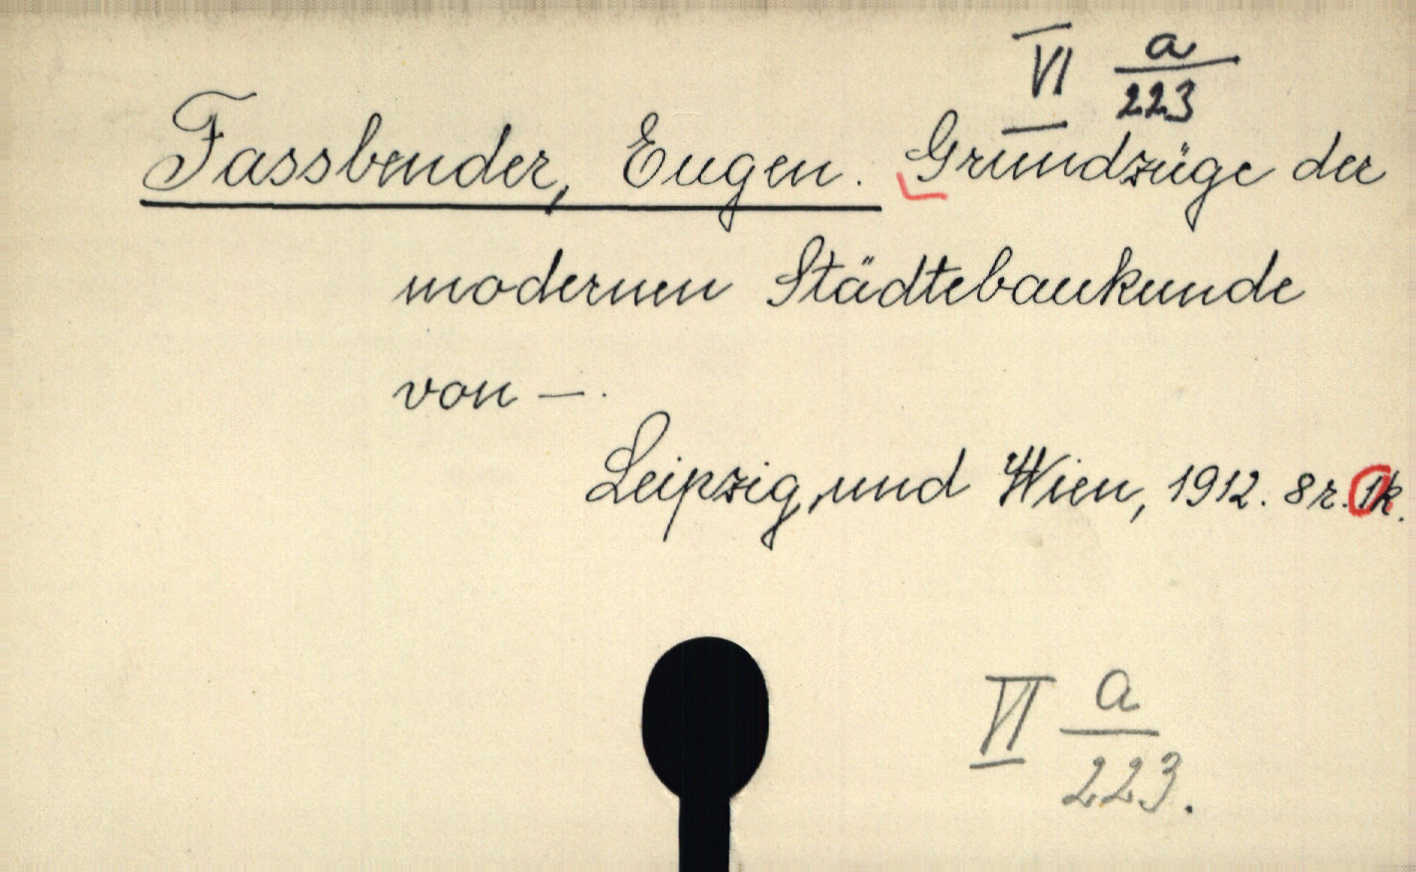 VI a/223
Fassbender, Eugen. Grundzüge der
modernen Städtebaukunde
von —.
Leipzig, und Wien, 1912. 8r. 1k.
VI a/223.